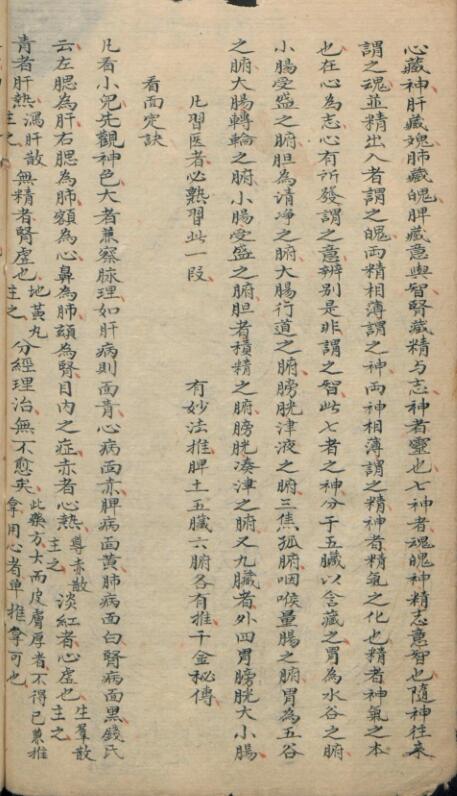 心藏神肝藏魂肺藏魄脾藏意與智腎藏精与志神者靈也七神者魂魄神精志意智也隨神徃来
謂之魂並精出入者謂之魄両精相薄謂之神両神相薄謂之精神者精氣之化也精者神氣之本
也在心為志心有所發謂之意辨别是非謂之智此七者之神分于五臓以含藏之胃為水谷之腑
小腸受盛之腑胆為清凈之腑大腸行道之腑膀胱津液之腑三焦孤腑咽喉量腸之腑胃為五谷
之腑大腸轉輪之腑小腸受盛之腑胆者積精之腑膀胱凑津之腑又九臓者外四胃膀胱大小腸
凡習医者必熟習此一段 有妙法推脾土五臓六腑各有推千金秘傳
看面定訣
凡看小児先觀神色大者兼察脉理如肝病則面青心病面赤脾病面黄肺病面白腎病面黒錢氏
云左腮為肝右腮為肺額為心鼻為肺頦為腎目内之症赤者心熱導赤散主之淡紅者心虚也生羣散主之
青者肝熱瀉肝散主之無精者腎虚也地黄丸主之分經理治無不愈矣此藥方大而皮膚厚者不得已兼推拿用心者单推拿可也